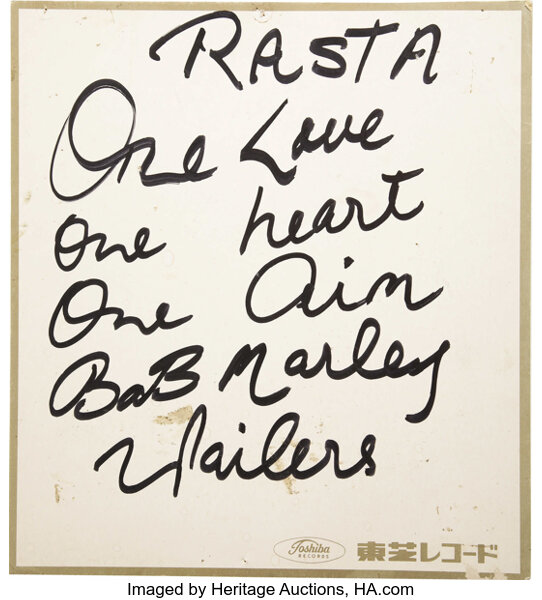 RASTA
One Love
One heart
One Aim
BoB Marley
Wailers
Toshiba
RECORDS
東芝レコード
Imaged by Heritage Auctions, HA.com